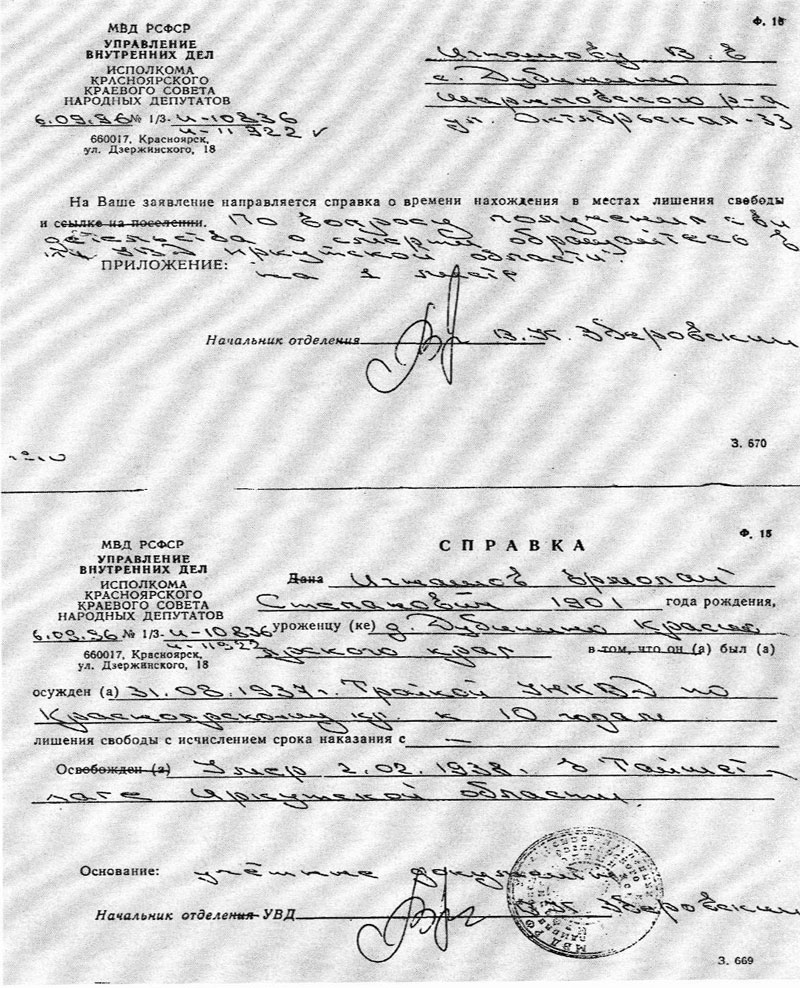 Ф. 16
МВД РСФСР
УПРАВЛЕНИЕ
ВНУТРЕННИХ ДЕЛ
ИСПОЛКОМА
КРАСНОЯРСКОГО
КРАЕВОГО СОВЕТА
НАРОДНЫХ ДЕПУТАТОВ
6.09.96 № 1/3- и-10836
и-11922
660017, Красноярск,
ул. Дзержинского, 18
Игнашову В. Е
с. Дубинино
Шарыповского р-а
ул. Октябрьская-33
На Ваше заявление направляется справка о времени нахождения в местах лишения свободы
и ссылке на поселении. По вопросу получения сви
детельства о смерти обращайтесь в
УВД Иркутской области.
ПРИЛОЖЕНИЕ: на 1 листе
Начальник отделения В.К. Зверовский
З. 670
Ф. 15
МВД РСФСР
УПРАВЛЕНИЕ
ВНУТРЕННИХ ДЕЛ
ИСПОЛКОМА
КРАСНОЯРСКОГО
КРАЕВОГО СОВЕТА
НАРОДНЫХ ДЕПУТАТОВ
6.09.96 № 1/3- и-10836
и-11922
660017, Красноярск,
ул. Дзержинского, 18
СПРАВКА
Дана Игнашов Ермолай
Степанович 1901 года рождения,
уроженцу (ке) д. Дубинино Красно
ярского края в том, что он (а) был (а)
осужден (а) 31.08.1937г. Тройкой УНКВД по
Красноярскому кр. к 10 годам
лишения свободы с исчислением срока наказания с —
Освобожден (а) Умер 2.02.1938г. в Тайшет-
лаге Иркутской области.
Основание: учётные документы
Начальник отделения УВД В.К. Зверовский
З. 669